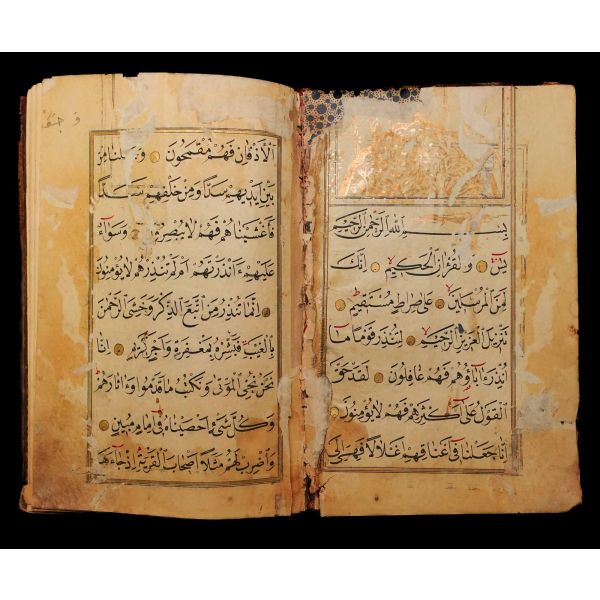 بِسْمِ اللهِ الرَّحْمٰنِ الرَّحِيمِ
يٰسٓ وَالْقُرْاٰنِ الْحَكِيمِ اِنَّكَ
لَمِنَ الْمُرْسَلِينَ عَلٰى صِرَاطٍ مُسْتَقِيمٍ
تَنْزِيلَ الْعَزِيزِ الرَّحِيمِ لِتُنْذِرَ قَوْمًا مَا
اُنْذِرَ اٰبَاؤُهُمْ فَهُمْ غَافِلُونَ لَقَدْ حَقَّ
الْقَوْلُ عَلٰى اَكْثَرِهِمْ فَهُمْ لَا يُؤْمِنُونَ
اِنَّا جَعَلْنَا فِي اَعْنَاقِهِمْ اَغْلَالًا فَهِيَ اِلَى
الْاَذْقَانِ فَهُمْ مُقْمَحُونَ وَجَعَلْنَا مِنْ
بَيْنِ اَيْدِيهِمْ سَدًّا وَمِنْ خَلْفِهِمْ سَدًّا
فَاَغْشَيْنَاهُمْ فَهُمْ لَا يُبْصِرُونَ وَسَوَاءٌ
عَلَيْهِمْ ءَاَنْذَرْتَهُمْ اَمْ لَمْ تُنْذِرْهُمْ لَا يُؤْمِنُونَ
اِنَّمَا تُنْذِرُ مَنِ اتَّبَعَ الذِّكْرَ وَخَشِيَ الرَّحْمٰنَ
بِالْغَيْبِ فَبَشِّرْهُ بِمَغْفِرَةٍ وَاَجْرٍ كَرِيمٍ اِنَّا
نَحْنُ نُحْيِي الْمَوْتٰى وَنَكْتُبُ مَا قَدَّمُوا وَاٰثَارَهُمْ
وَكُلَّ شَيْءٍ اَحْصَيْنَاهُ فِي اِمَامٍ مُبِينٍ
وَاضْرِبْ لَهُمْ مَثَلًا اَصْحَابَ الْقَرْيَةِ اِذْ جَاءَهَا